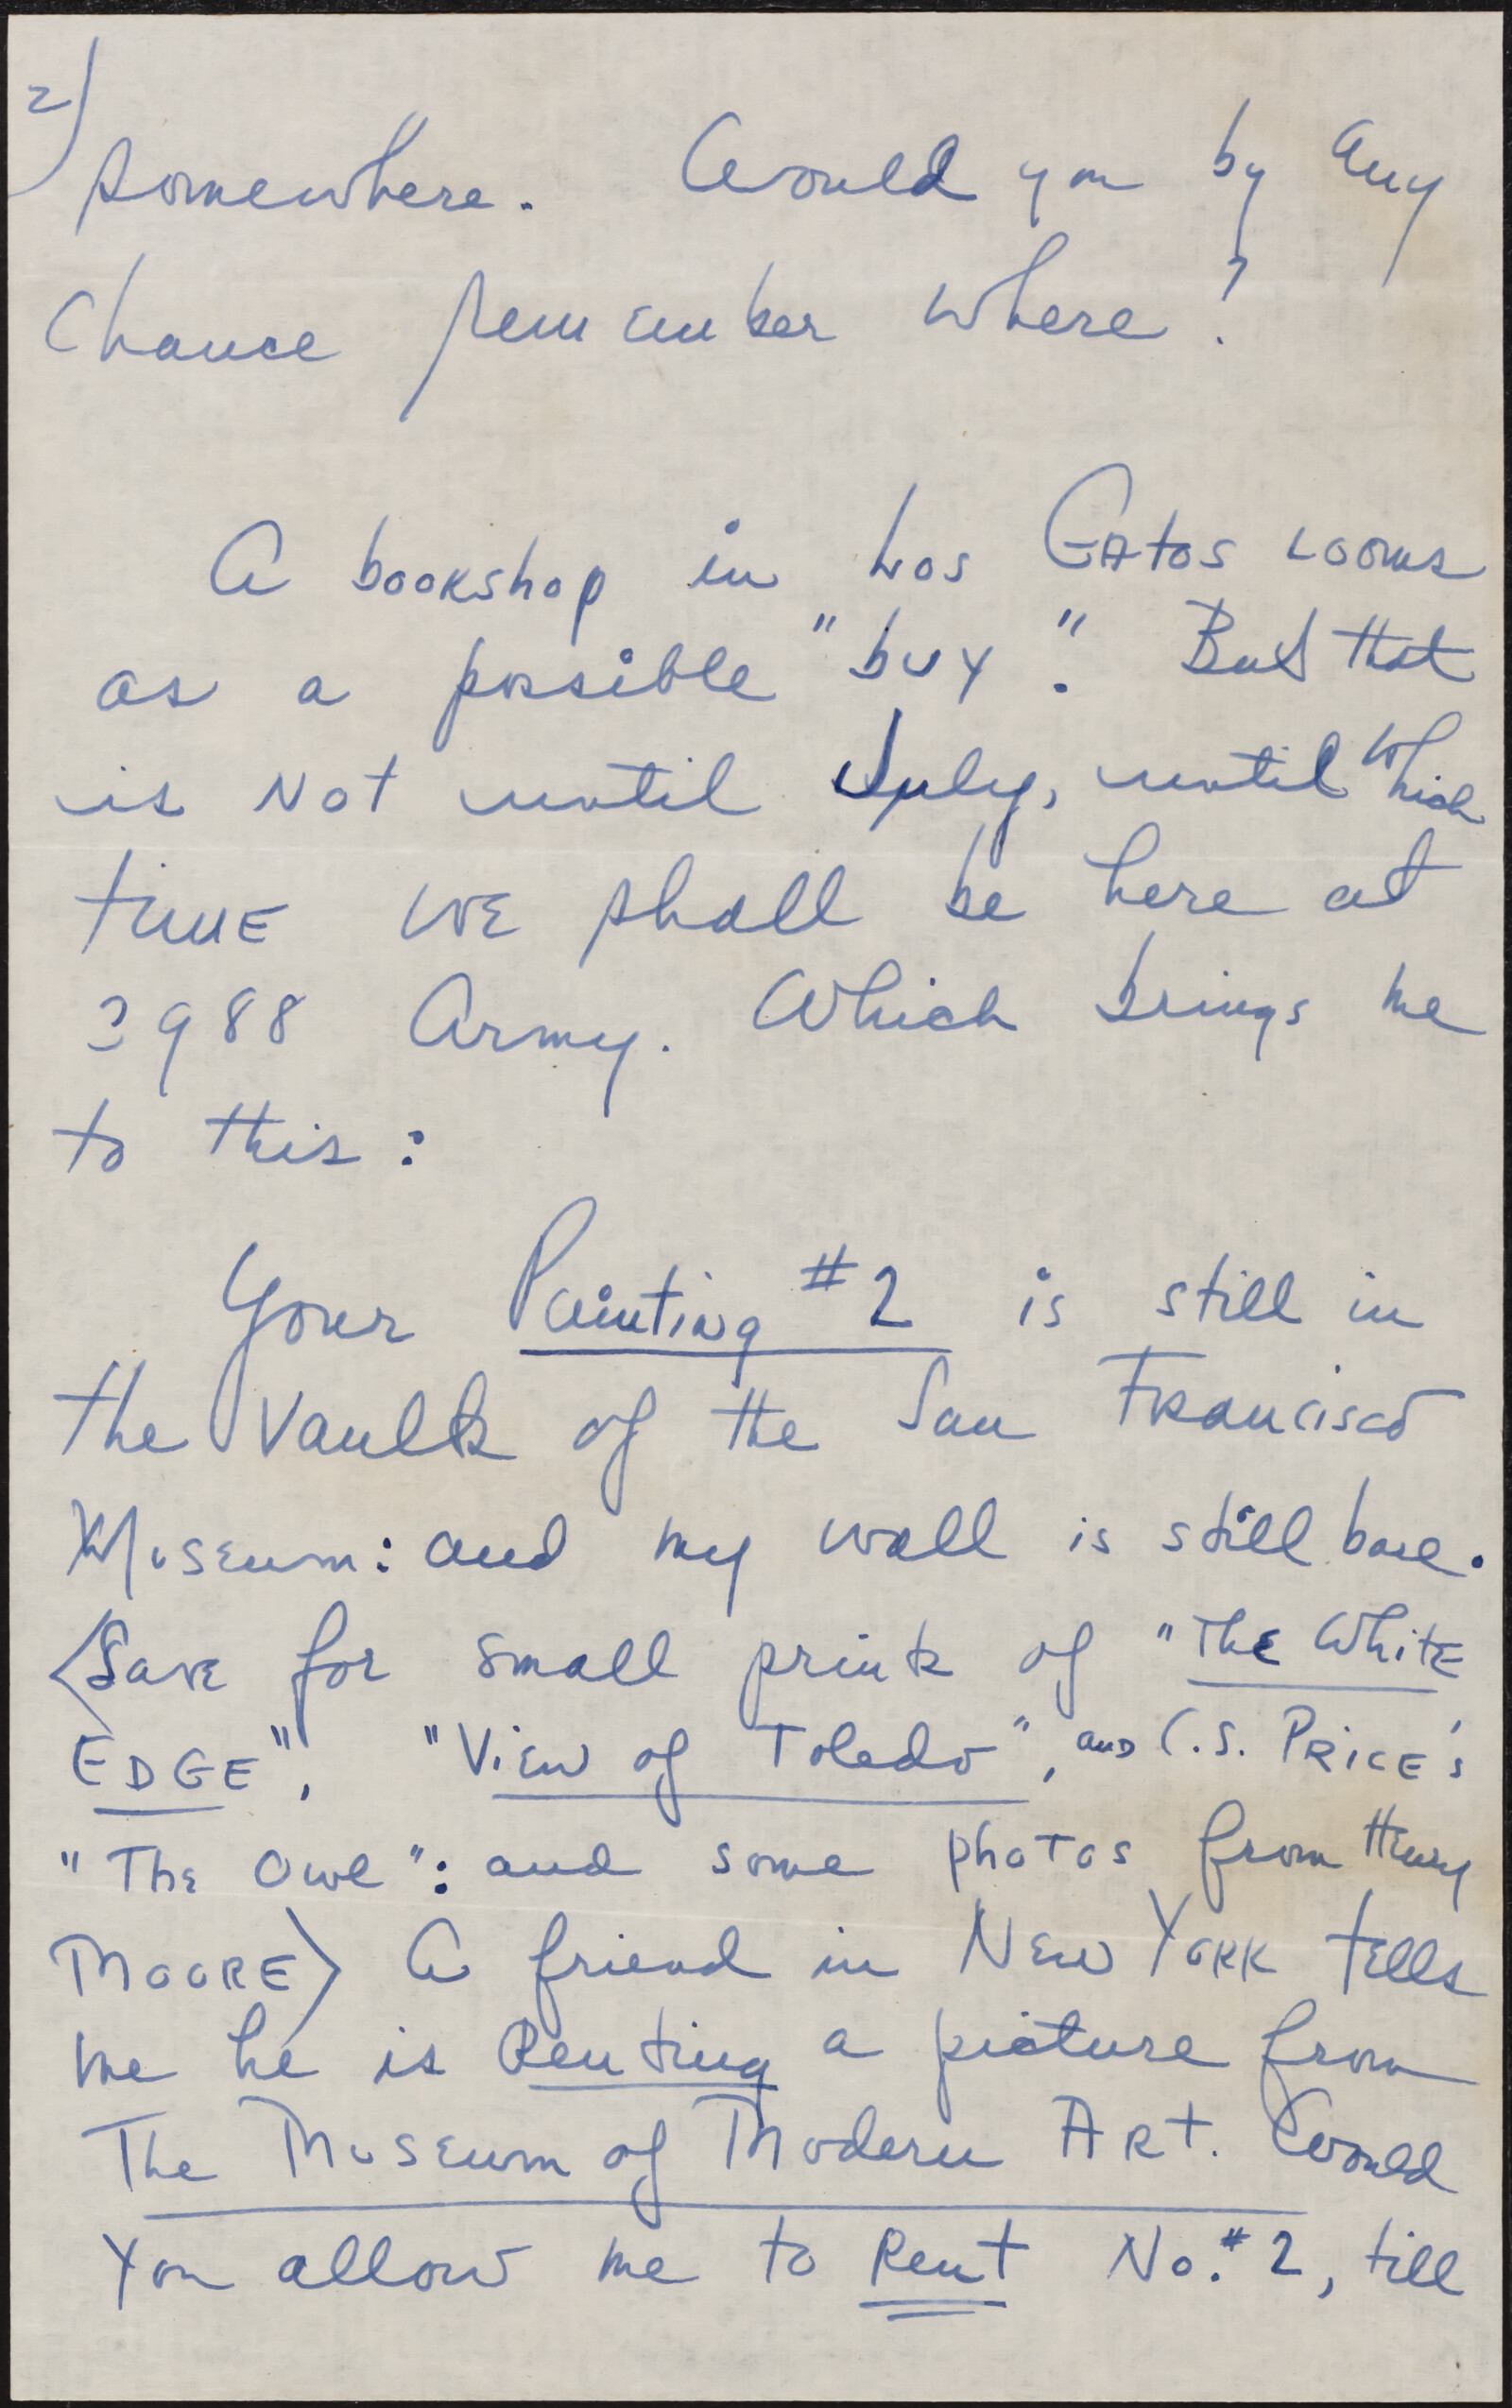 2)
somewhere. Would you by any
chance remember where?
A bookshop in Los Gatos looms
as a possible "buy". But that
is not until July, until which
time we shall be here at
3988 Army. Which brings me
to this:
Your Painting #2 is still in
the vaults of the San Francisco
Museum: and my wall is still bare.
<Save for small prints of "The White
EDGE", "View of Toledo", and C.S. PRICE's
"The Owl": and some photos from Henry
MOORE> A friend in New York tells
me he is Renting a picture from
The Museum of Modern Art. Would
You allow me to Rent No. #2, till